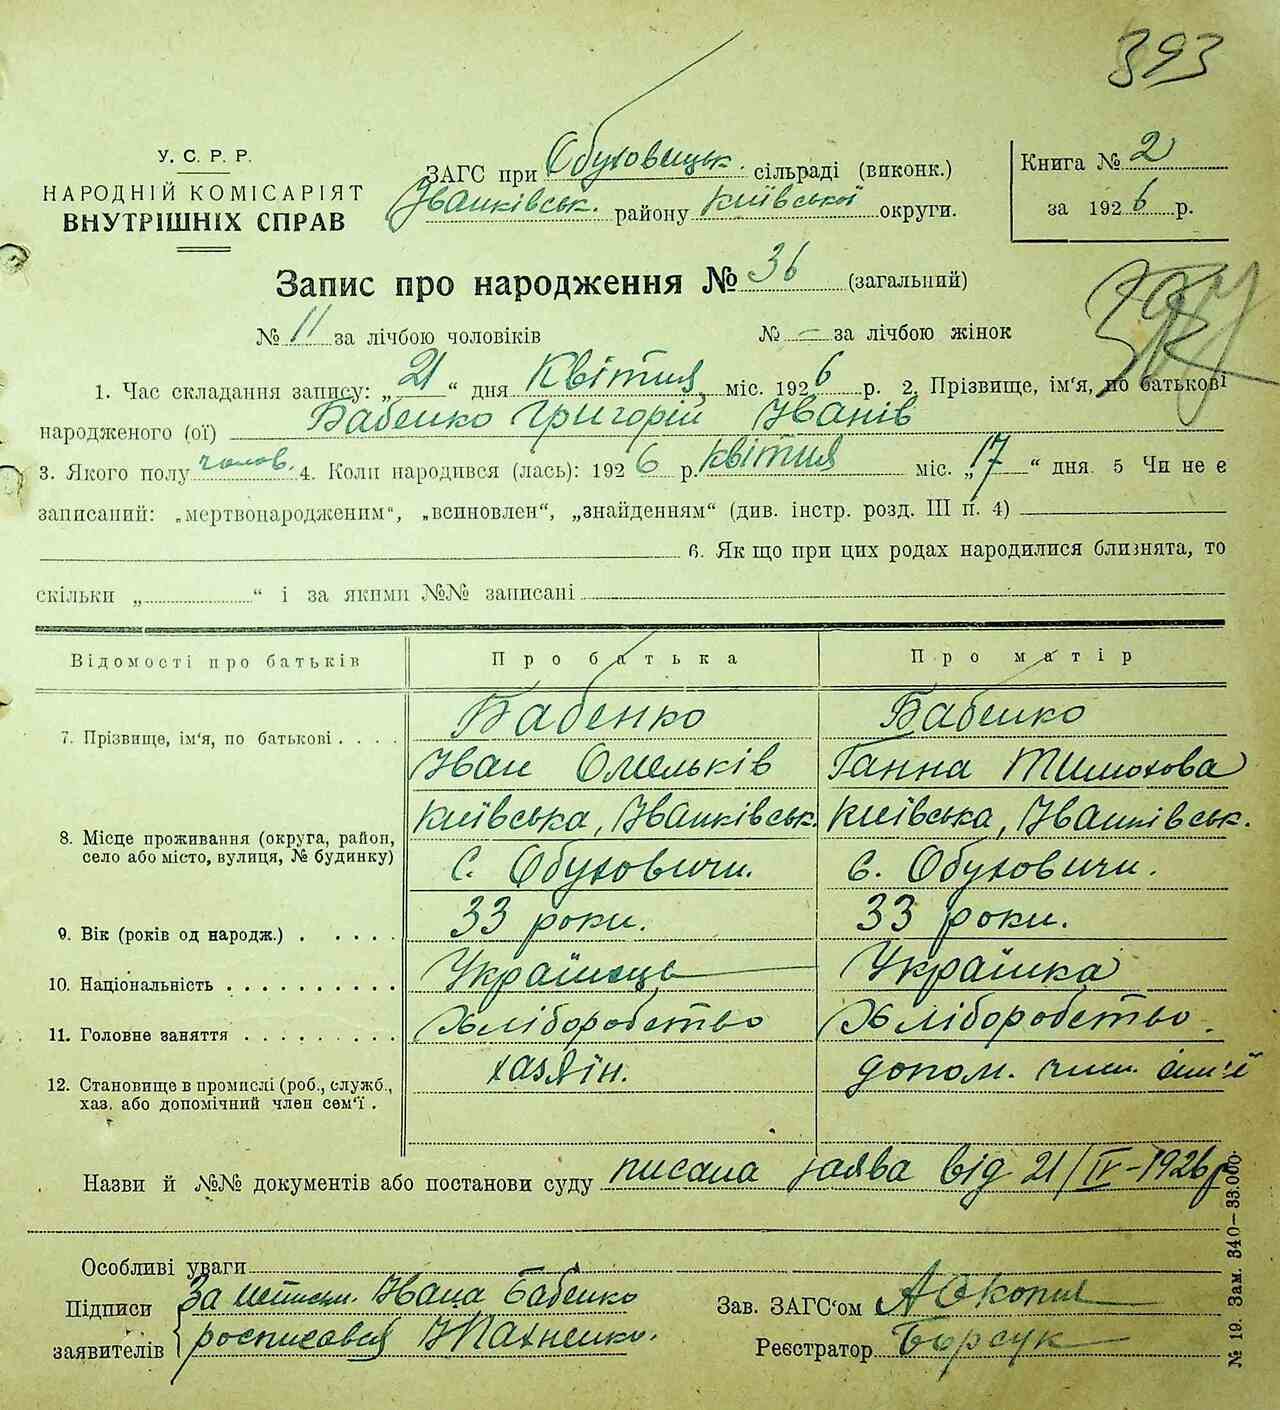 393
У. С. Р. Р.
НАРОДНІЙ КОМІСАРІЯТ
ВНУТРІШНІХ СПРАВ
ЗАГС при Обуховицьк. сільраді (виконк.)
Іванківськ. району Київської округи.
Книга № 2
за 1926 р.
Запис про народження № 36 (загальний)
№ 11 за лічбою чоловіків № — за лічбою жінок
1. Час складання запису: „21“ дня Квітня міс. 1926 р. 2. Прізвище, ім'я, по батькові
народженого (ої) Бабенко Григорій Іванів
3. Якого полу чолов. 4. Коли народився (лась): 1926 р. Квітня міс. „17“ дня. 5 Чи не є
записаний: „мертвонародженим“, „всиновлен“, „знайденням“ (див. інстр. розд. III п. 4)
6. Як що при цих родах народилися близнята, то
скільки „ “ і за якими №№ записані
Відомості про батьків Про батька Про матір
7. Прізвище, ім'я, по батькові Бабенко Бабенко
Іван Омельків Ганна Тимохова
8. Місце проживання (округа, район, Київська, Іванківськ. Київська, Іванківськ.
село або місто, вулиця, № будинку) С. Обуховичи. С. Обуховичи.
9. Вік (років од народж.) 33 роки. 33 роки.
10. Національність Українець Українка
11. Головне заняття Хліборобство Хліборобство.
12. Становище в промислі (роб., служб., хазяїн. допом. член. сім'ї
хаз. або допомічний член сем'ї.
Назви й №№ документів або постанови суду писана заява від 21/IV-1926 р.
Особливі уваги
Підписи За неписьм. Івана Бабенко
заявителів росписався
Зав. ЗАГС'ом
Реєстратор Борсук
№ 19. Зам. 340—33.000